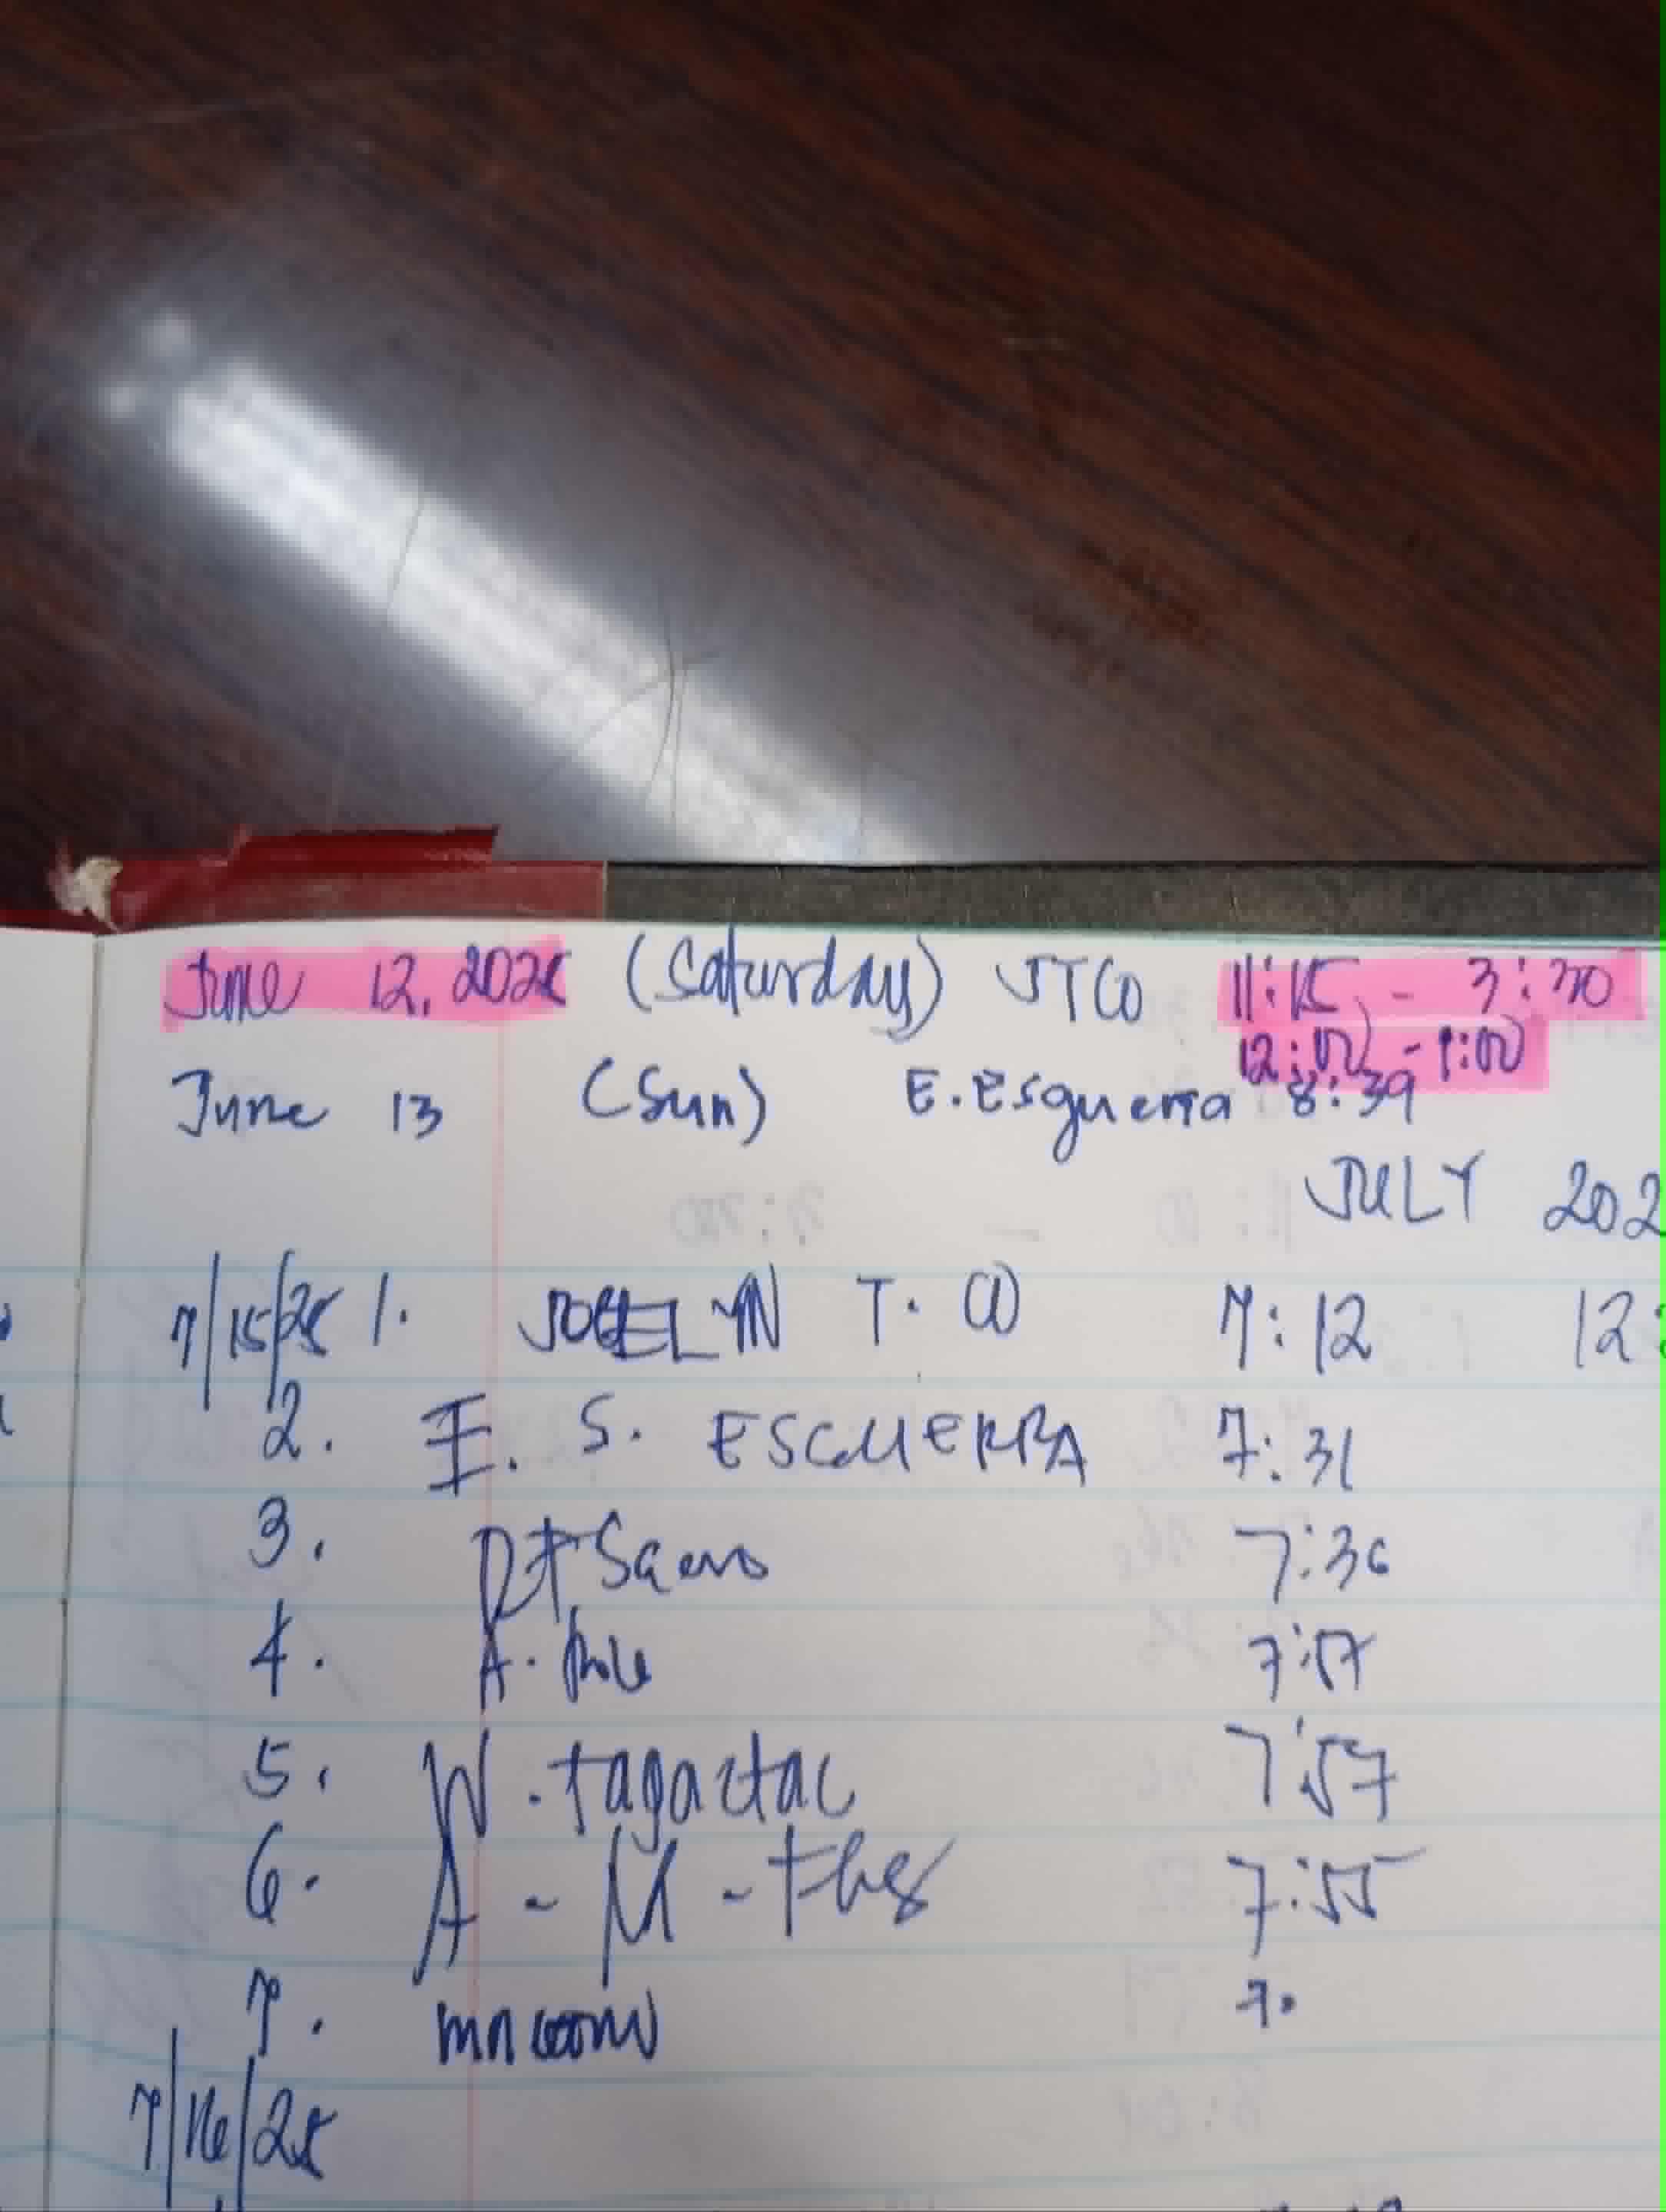 June 12, 2025 (Saturday) JTCO 11:15 - 3:30
12:00 - 1:00
June 13 (Sun) E. Esguerra 8:39
JULY 202
7/15/25 1. JOCELYN T. CO 7:12 12:
2. E. S. ESGUERRA 7:31
3. 7:36
4. A. 7:57
5. W. tagactac 7:57
6. A - M - 7:55
7. 7.
7/16/25